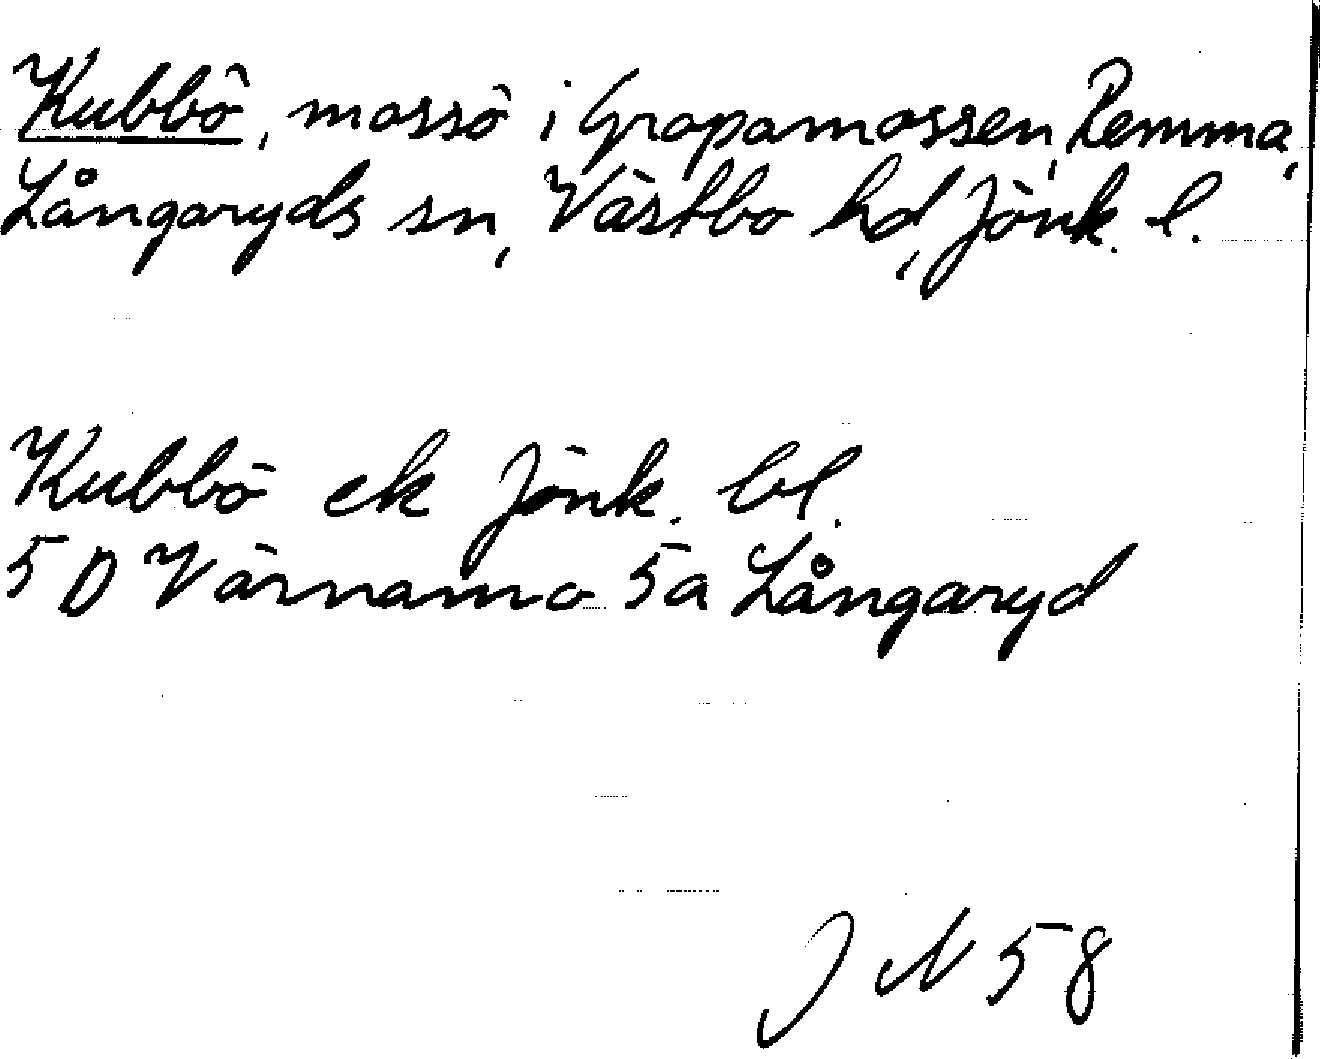 Kubbö, mossö i Gropamossen, Remma,
Långaryds sn, Västbo hd, Jönk. l.
Kubbö ek Jönk. bl.
5 D Värnamo 5a Långaryd
J N 58